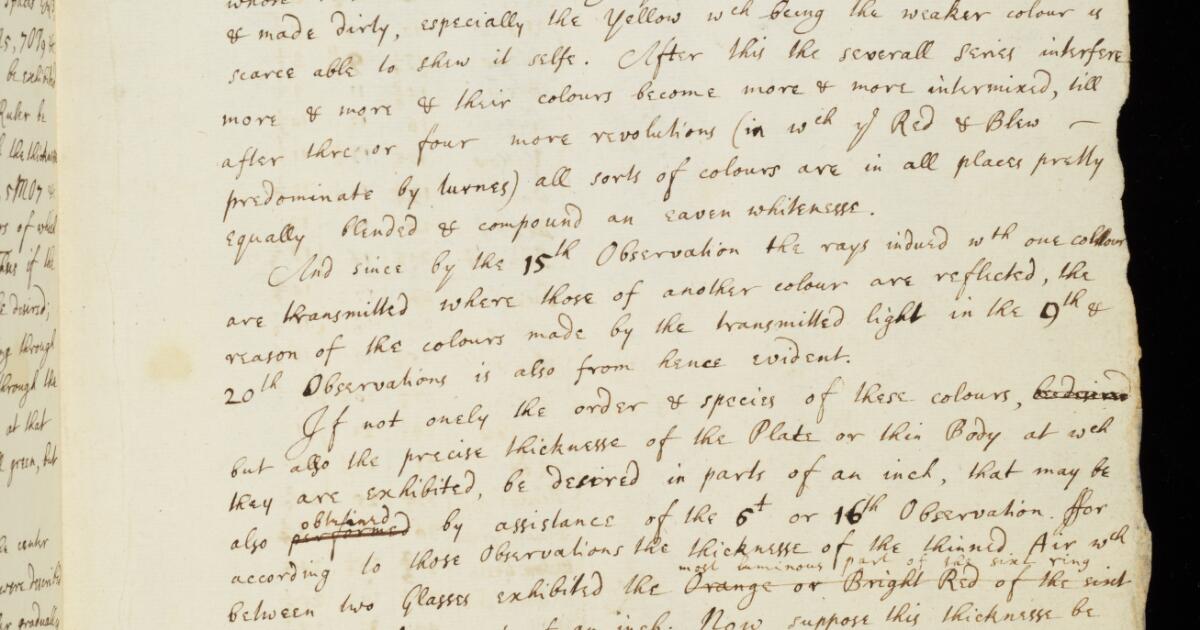 whose
& made dirty, especially the Yellow wch being the weaker colour is
scarce able to shew it selfe. After this the severall series interfere
more & more & their colours become more & more intermixed, till
after thre or four more revolutions (in wch ye Red & Blew —
predominate by turnes) all sorts of colours are in all places pretty
equally blended & compound an eaven whitenesse.
And since by the 15th Observation the rays indued wth one colour
are transmitted where those of another colour are reflected, the
reason of the colours made by the transmitted light in the 9th &
20th Observations is also from hence evident.
If not onely the order & species of these colours, be desired
but also the precise thicknesse of the Plate or thin Body at wch
they are exhibited, be desired in parts of an inch, that may be
obteined
also performed by assistance of the 6t or 16th Observation. ffor
according to those Observations the thicknesse of the thinned Air wch
most luminous part of the sixt ring
between two Glasses exhibited the Orange or Bright Red of the sixt
an inch. Now suppose this thicknesse be
5, 7079
be exhibited
Ruler be
the thickness
of which
if the
desired;
through
through the
at that
green, but
center
were described
gradually